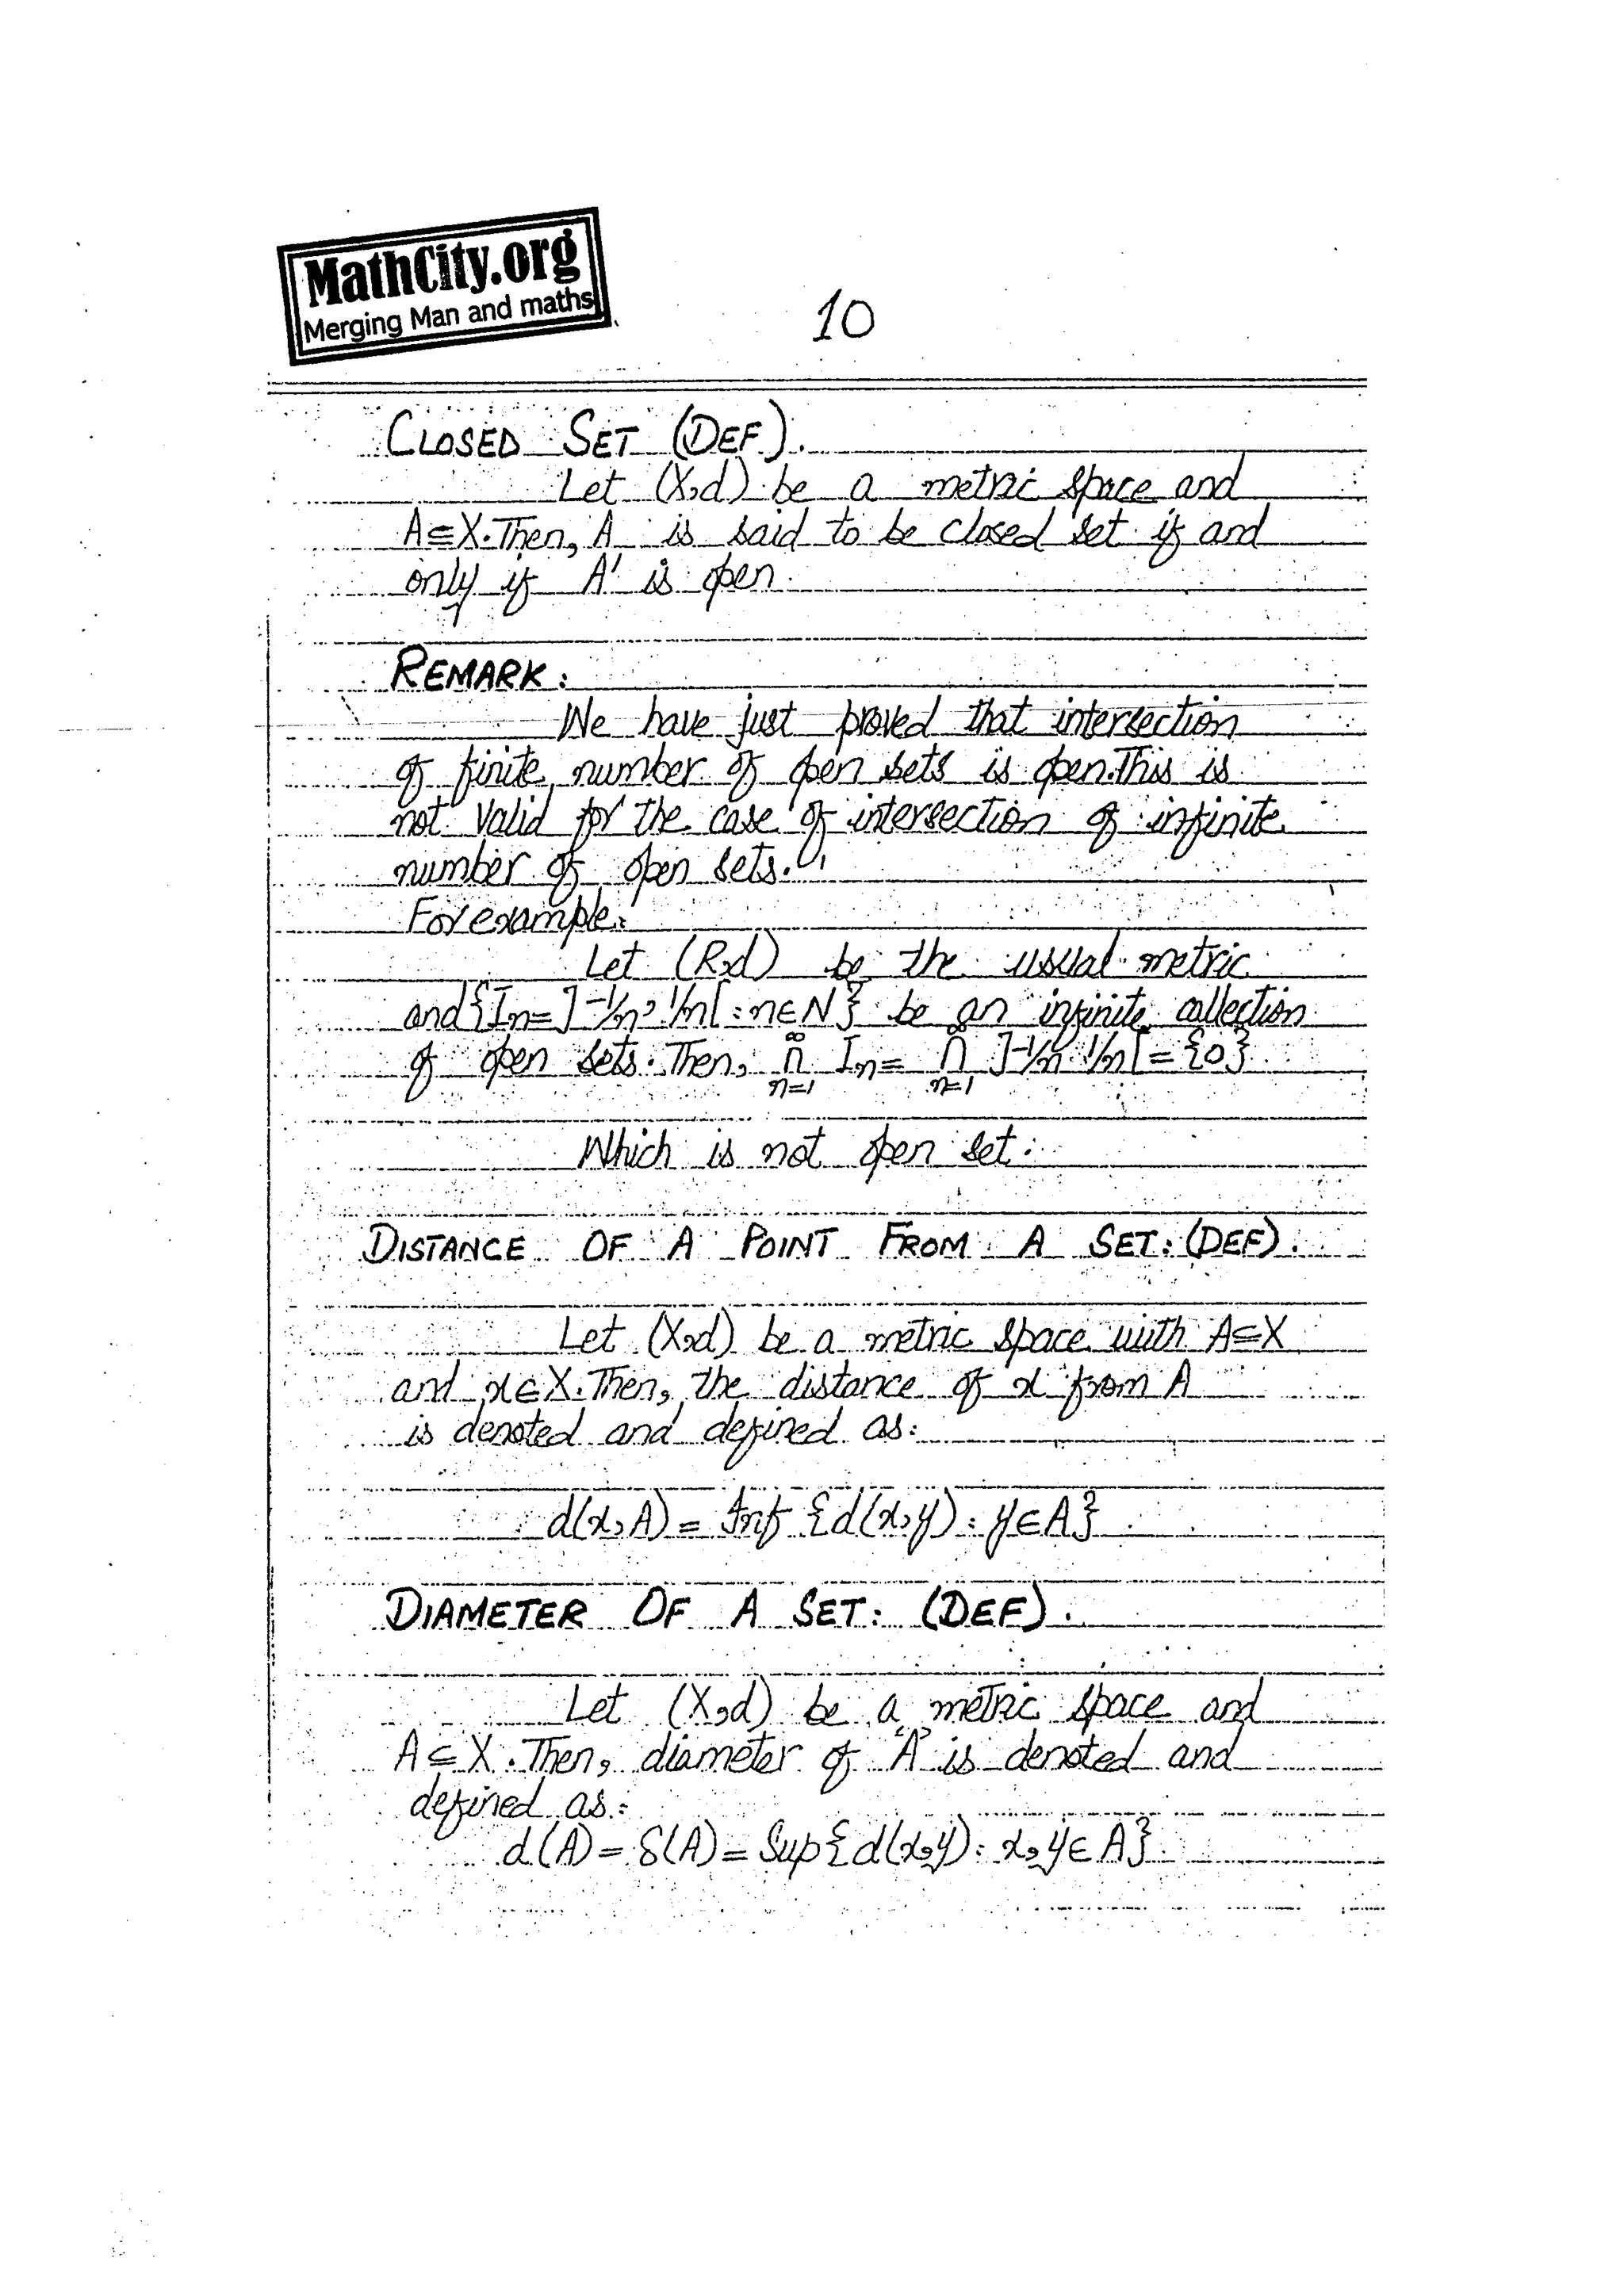 MathCity.org
Merging Man and maths
10
CLOSED SET (DEF).
Let (X,d) be a metric space and
A⊆X. Then, A is said to be closed set if and
only if A' is open.
REMARK:
We have just proved that intersection
of finite number of open sets is open. This is
not valid for the case of intersection of infinite
number of open sets.
For example:
Let (R,d) be the usual metric
and {In= ]-1/n, 1/n[ : n∈N} be an infinite collection
of open sets. Then, ∞∩n=1 In = ∞∩n=1 ]-1/n, 1/n[ = {0}
Which is not open set.
DISTANCE OF A POINT FROM A SET: (DEF).
Let (X,d) be a metric space with A⊆X
and x∈X. Then, the distance of x from A
is denoted and defined as:
d(x,A) = Inf {d(x,y) : y∈A}
DIAMETER OF A SET: (DEF).
Let (X,d) be a metric space and
A⊆X. Then, diameter of 'A' is denoted and
defined as:
d(A) = δ(A) = Sup{d(x,y): x,y∈A}